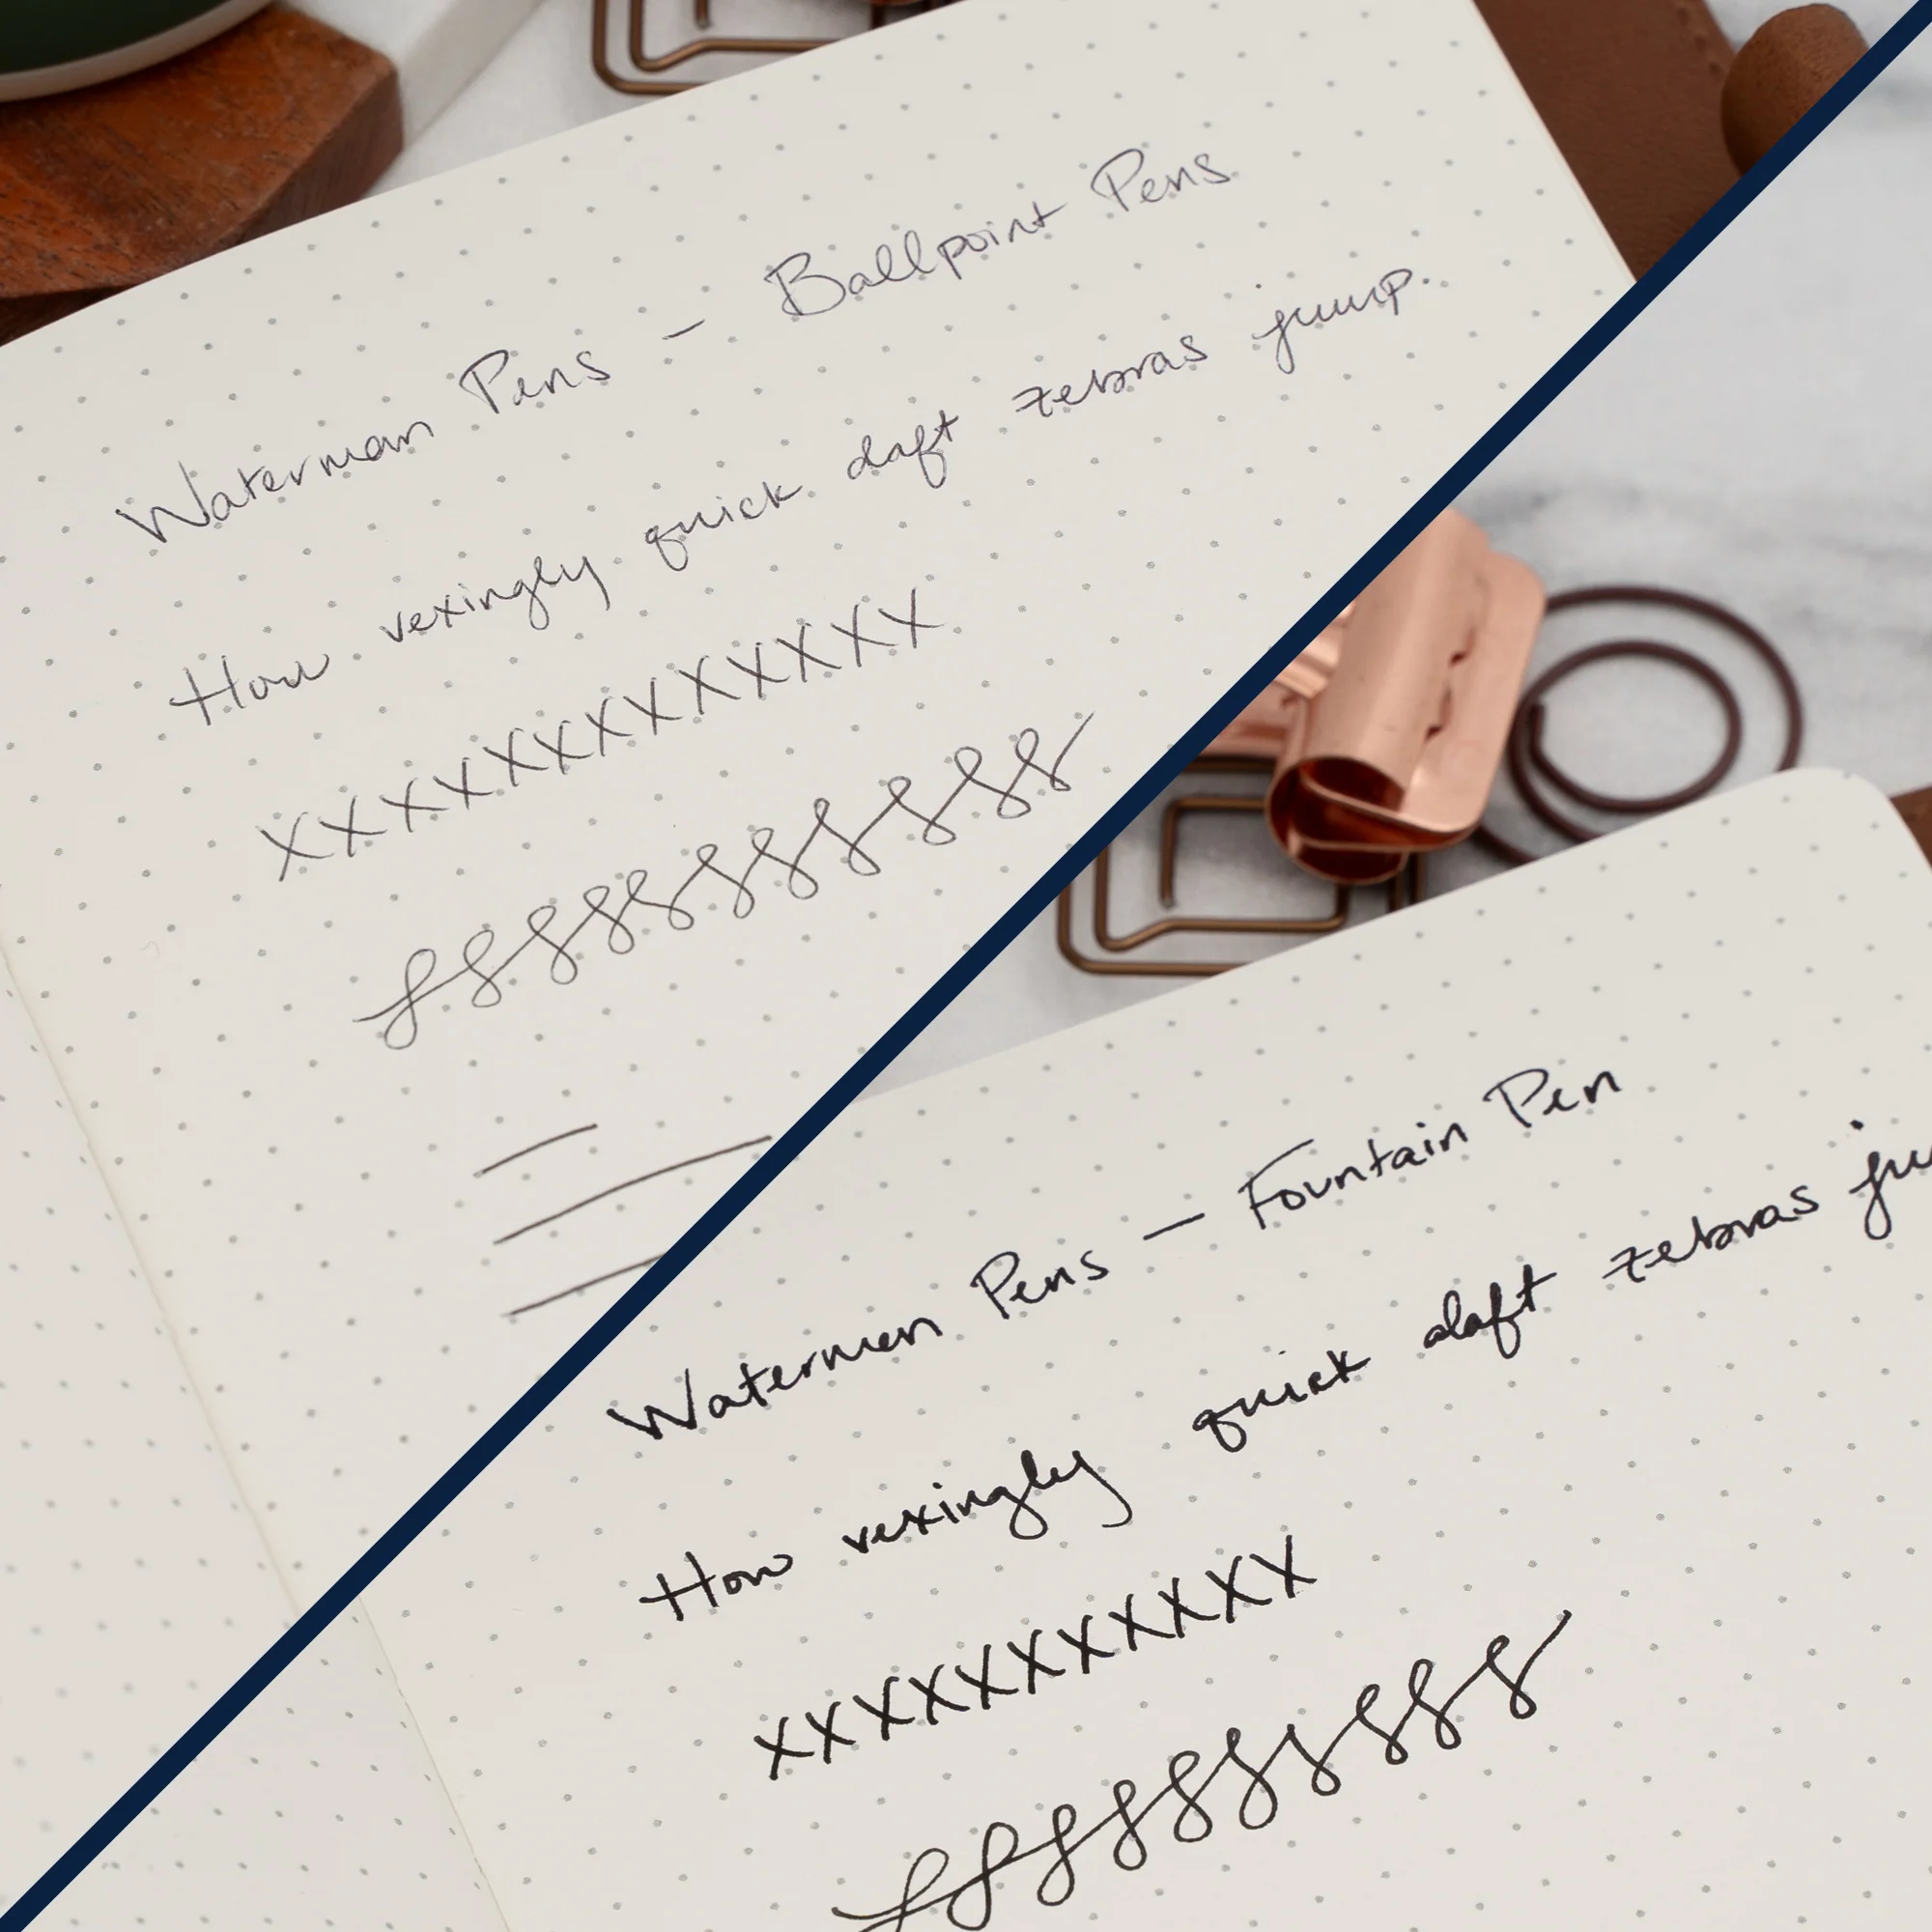 Waterman Pens - Ballpoint Pens
How vexingly quick daft zebras jump.
XXXXXXXXXXXXX
Waterman Pens - Fountain Pen
How vexingly quick daft zebras ju
XXXXXXXXXXX